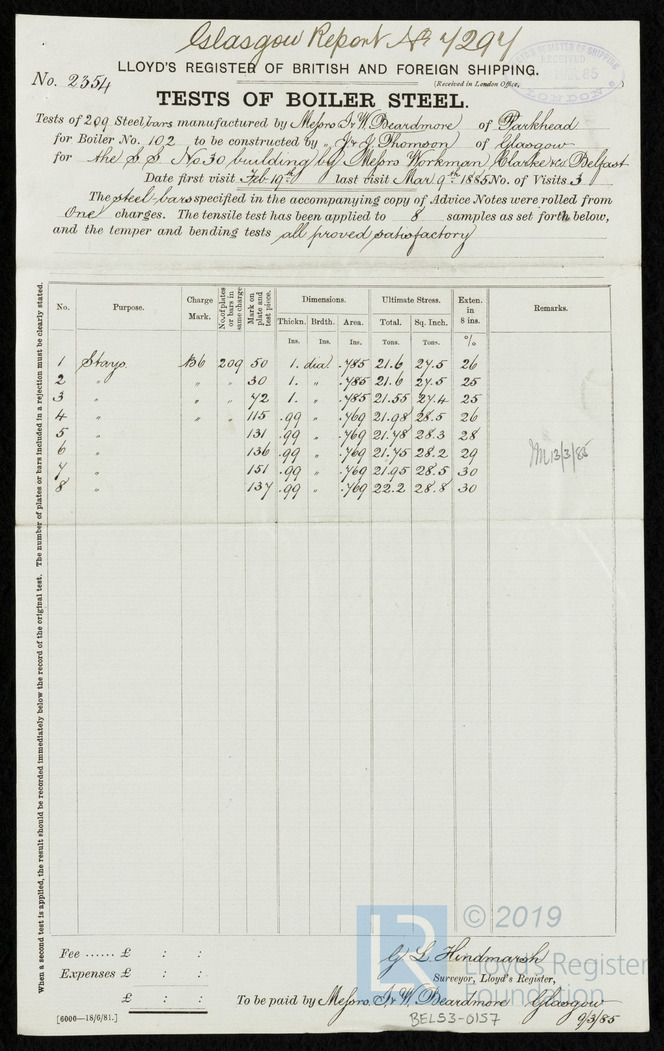 Glasgow Report No 7297
LLOYD'S REGISTER OF BRITISH AND FOREIGN SHIPPING.
No. 2354
(Received in London Office, )
RECEIVED
85
LONDON
TESTS OF BOILER STEEL.
Tests of 209 Steel bars manufactured by Messrs J & W. Beardmore of Parkhead
for Boiler No. 102 to be constructed by " J & G Thomson of Glasgow
for the S S No 30 building by Messrs Workman Clarke & Co Belfast
Date first visit Feb 19th last visit Mar 9th 1885 No. of Visits 3
The steel bars specified in the accompanying copy of Advice Notes were rolled from
One charges. The tensile test has been applied to 8 samples as set forth below,
and the temper and bending tests all proved satisfactory
When a second test is applied, the result should be recorded immediately below the record of the original test. The number of plates or bars included in a rejection must be clearly stated.
No. Purpose. Charge Mark. No. of plates or bars in same charge Mark on plate and test piece. Dimensions. Ultimate Stress. Exten. in 8 ins. Remarks.
Thickn. Brdth. Area. Total. Sq. Inch.
Ins. Ins. Ins. Tons. Tons. %
1 Stays 1836 209 50 1. dia .785 21.6 27.5 26
2 " " " 30 1. " .785 21.6 27.5 25
3 " " " 72 1. " .785 21.55 27.4 25
4 " " " 115 .99 " .769 21.98 28.5 26
5 " 131 .99 " .769 21.78 28.3 28
6 " 136 .99 " .769 21.75 28.2 29
7 " 151 .99 " .769 21.95 28.5 30
8 " 137 .99 " .769 22.2 28.8 30
13/3/85
Fee ...... £ : :
Expenses £ : :
£ : :
G L Hindmarsh
Surveyor, Lloyd's Register,
To be paid by Messrs. J & W. Beardmore Glasgow
[6000—18/6/81.]
BEL53-0157
9/3/85
LR © 2019
Lloyd's Register
Foundation